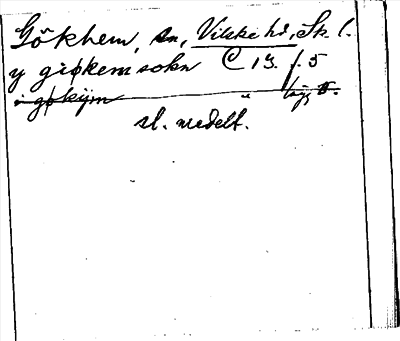 Gökhem, sn, Vilske hd, Sk. l.
y giøkem sokn C 13. f. 5
i gøkijm "
sl. medelt.